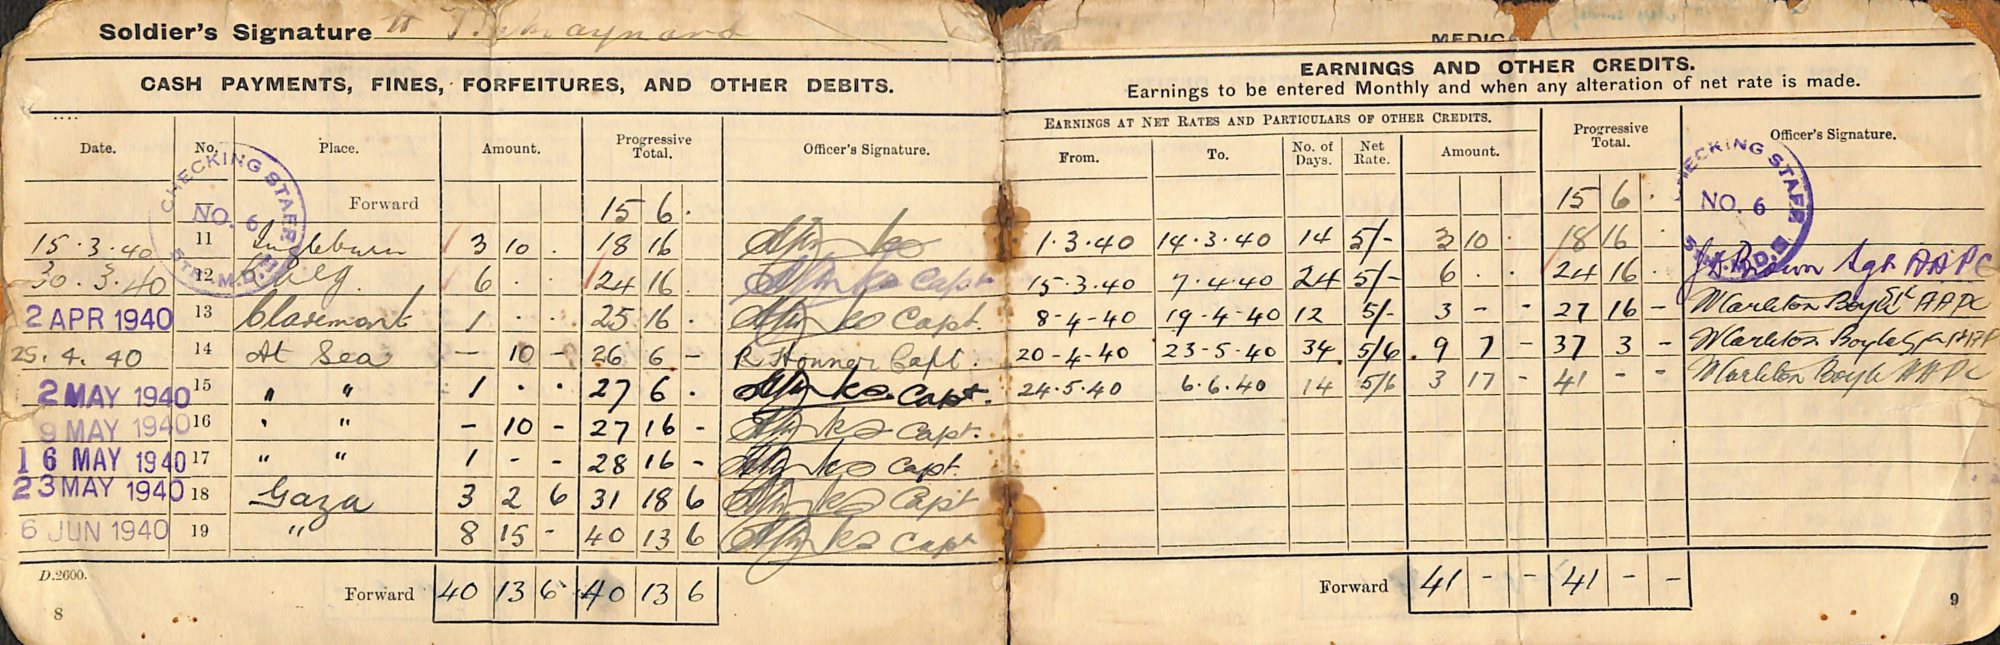 Soldier's Signature
CASH PAYMENTS, FINES, FORFEITURES, AND OTHER DEBITS.
Date. No. Place. Amount. Progressive Total. Officer's Signature.
CHECKING STAFF NO. 6
Forward 15 6 .
15.3.40 11 Ingleburn 3 10 . 18 16
30.3.40 12 6 . . 24 16 . Capt
2 APR 1940 13 Claremont 1 . . 25 16 . Capt.
25.4.40 14 At Sea - 10 - 26 6 - R Honner Capt.
2 MAY 1940 15 " " 1 . . 27 6 . Capt.
9 MAY 1940 16 " " - 10 - 27 16 - Capt.
16 MAY 1940 17 " " 1 - - 28 16 - Capt.
23 MAY 1940 18 Gaza 3 2 6 31 18 6 Capt
6 JUN 1940 19 " 8 15 - 40 13 6 Capt
D.2600. Forward 40 13 6 40 13 6
8
EARNINGS AND OTHER CREDITS.
Earnings to be entered Monthly and when any alteration of net rate is made.
EARNINGS AT NET RATES AND PARTICULARS OF OTHER CREDITS. Progressive Total. Officer's Signature.
From. To. No. of Days. Net Rate. Amount.
CHECKING STAFF NO. 6
15 6 .
1.3.40 14.3.40 14 5/- 3 10 . 18 16 .
15.3.40 7.4.40 24 5/- 6 . . 24 16 . Brown Sgt AAPC
8-4-40 19-4-40 12 5/- 3 - - 27 16 - Marleton Boyle AAPC
20-4-40 23-5-40 34 5/6 9 7 - 37 3 - Marleton Boyle
24.5.40 6.6.40 14 5/6 3 17 - 41 - - Marleton Boyle AAPC
Forward 41 - - 41 - -
9